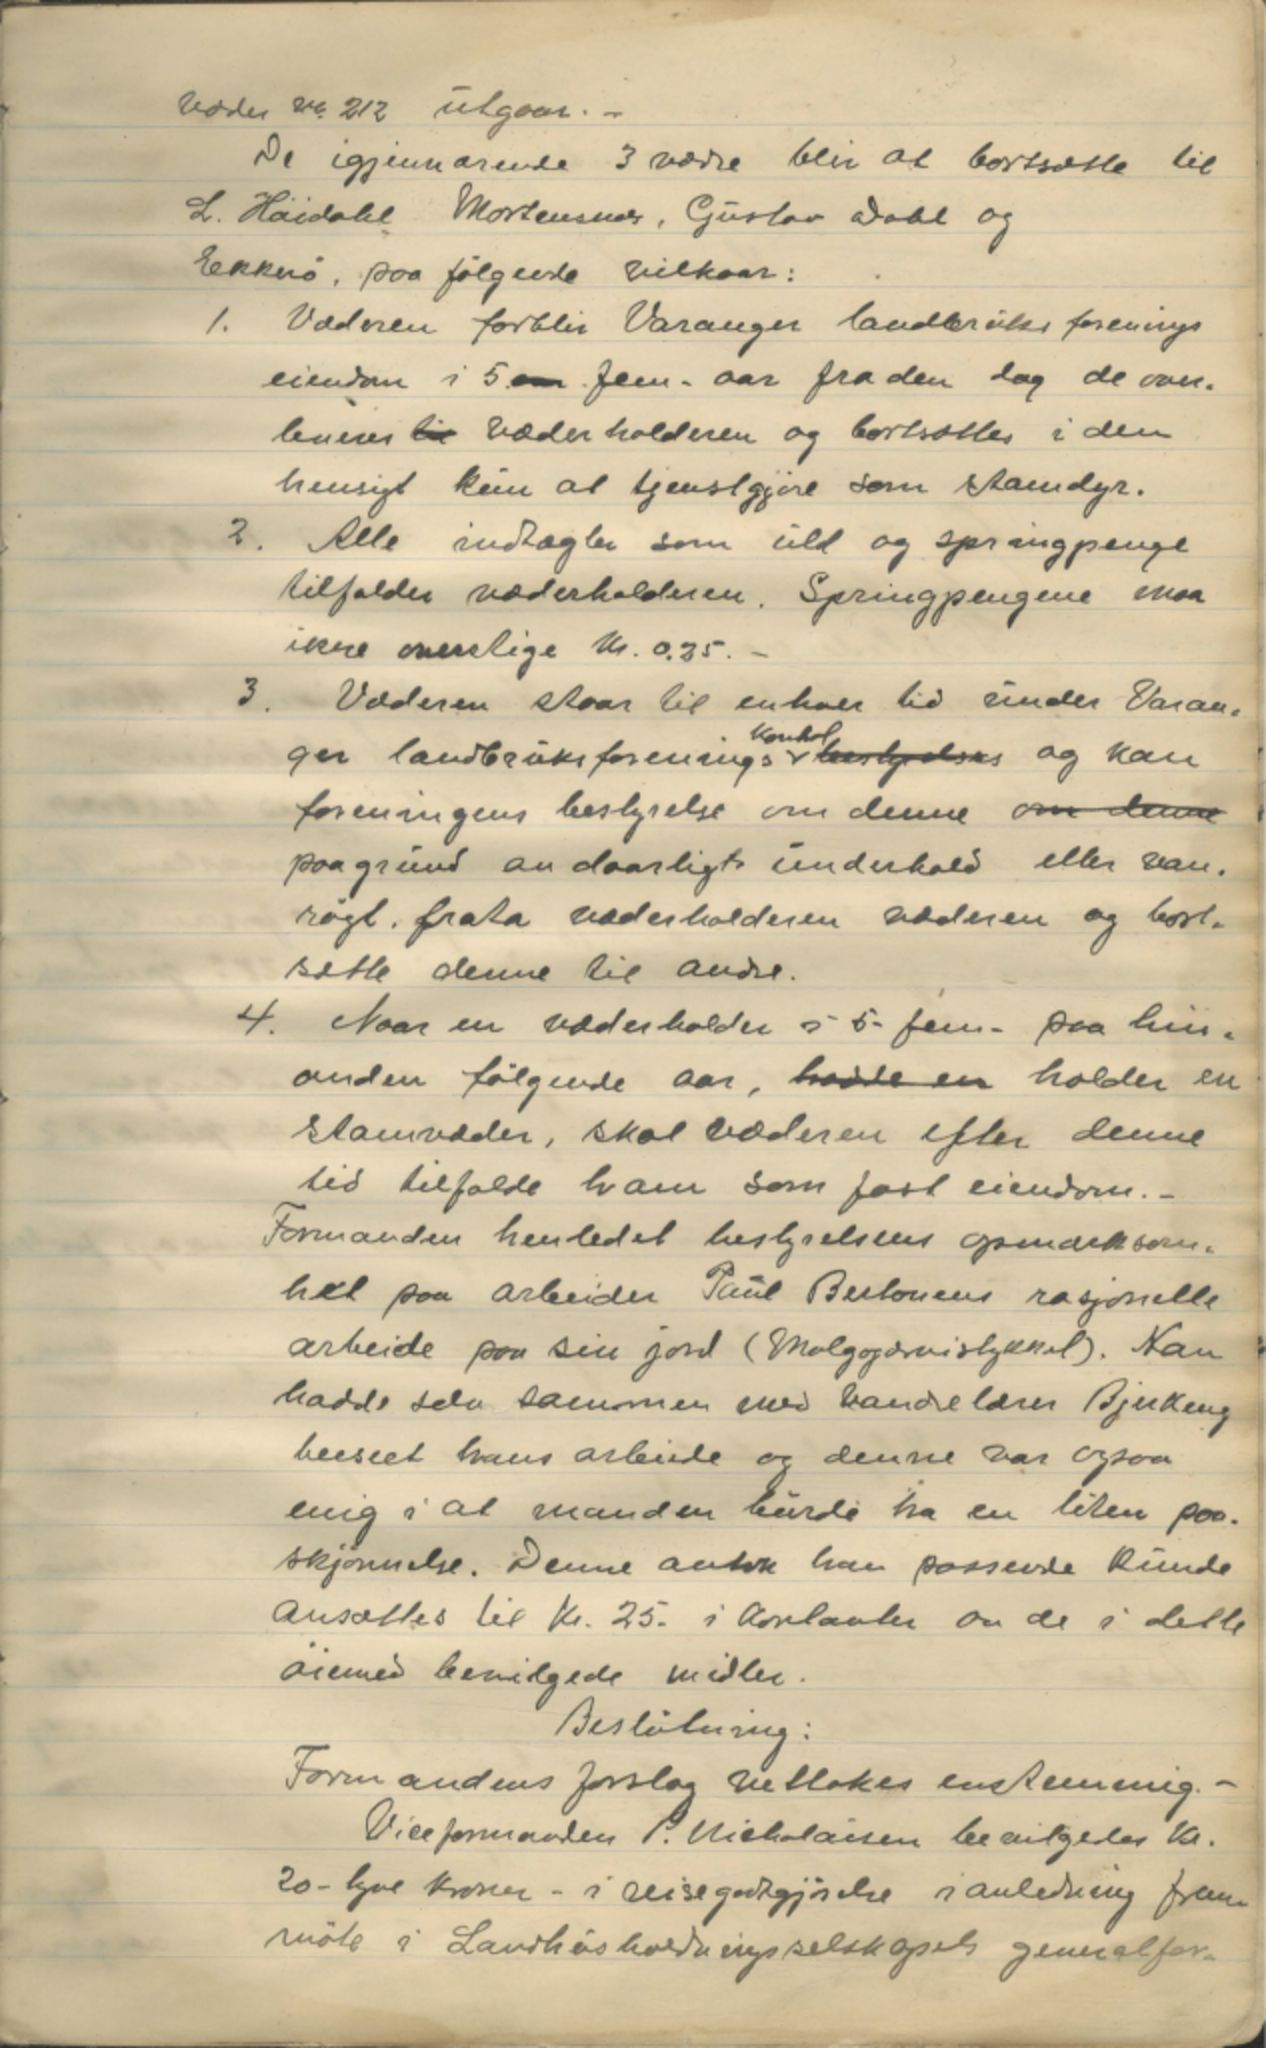 Væder no. 212 utgaar. -
De igjenværende 3 vædre blir at bortsætte til
L. Håidahl Mortensnes, Gustav Dahl og
Ekkerö, paa følgende vilkaar:
1. Væderen forblir Varanger landbruks forenings
eiendom i 5 fem- aar fra den dag de over-
leveres væderholderen og bortsættes i den
hensigt kun at tjenstgjøre som stamdyr.
2. Alle indtægter som uld og springpenge
tilfalder væderholderen. Springpengene maa
ikke overstige Kr. 0.25. -
3. Væderen staar til enhver tid under Varan-
ger landbruksforenings kontrol bestyrelses og kan
foreningens bestyrelse om denne om denne
paagrund av daarligt underhold eller van-
røgt, frata væderholderen væderen og bort-
sætte denne til andre.
4. Naar en væderholder i 5- fem- paa hin-
anden følgende aar, hadde en holder en
stamvæder, skal væderen efter denne
tid tilfalde ham som fast eiendom. -
Formanden henledet bestyrelsens opmerksom-
het paa arbeider Paul Bertonens rasjonelle
arbeide paa sin jord (Molgogjærvistykket). Han
hadde selv sammen med vandrelærer Bjerkeng
beseet hans arbeide og denne var ogsaa
enig i at manden burde ha en liten paa-
skjønnelse. Denne antok han passende kunde
ansættes til Kr. 25- i kontanter av de i dette
öiemed bevilgede midler.
Beslutning:
Formandens forslag vedtokes enstemmig. -
Viceformanden P. Nicholaisen bevilgedes Kr.
20- tyve kroner - i reisegodtgjörelse i anledning frem-
möte i Landhusholdningsselskapets generalfor-